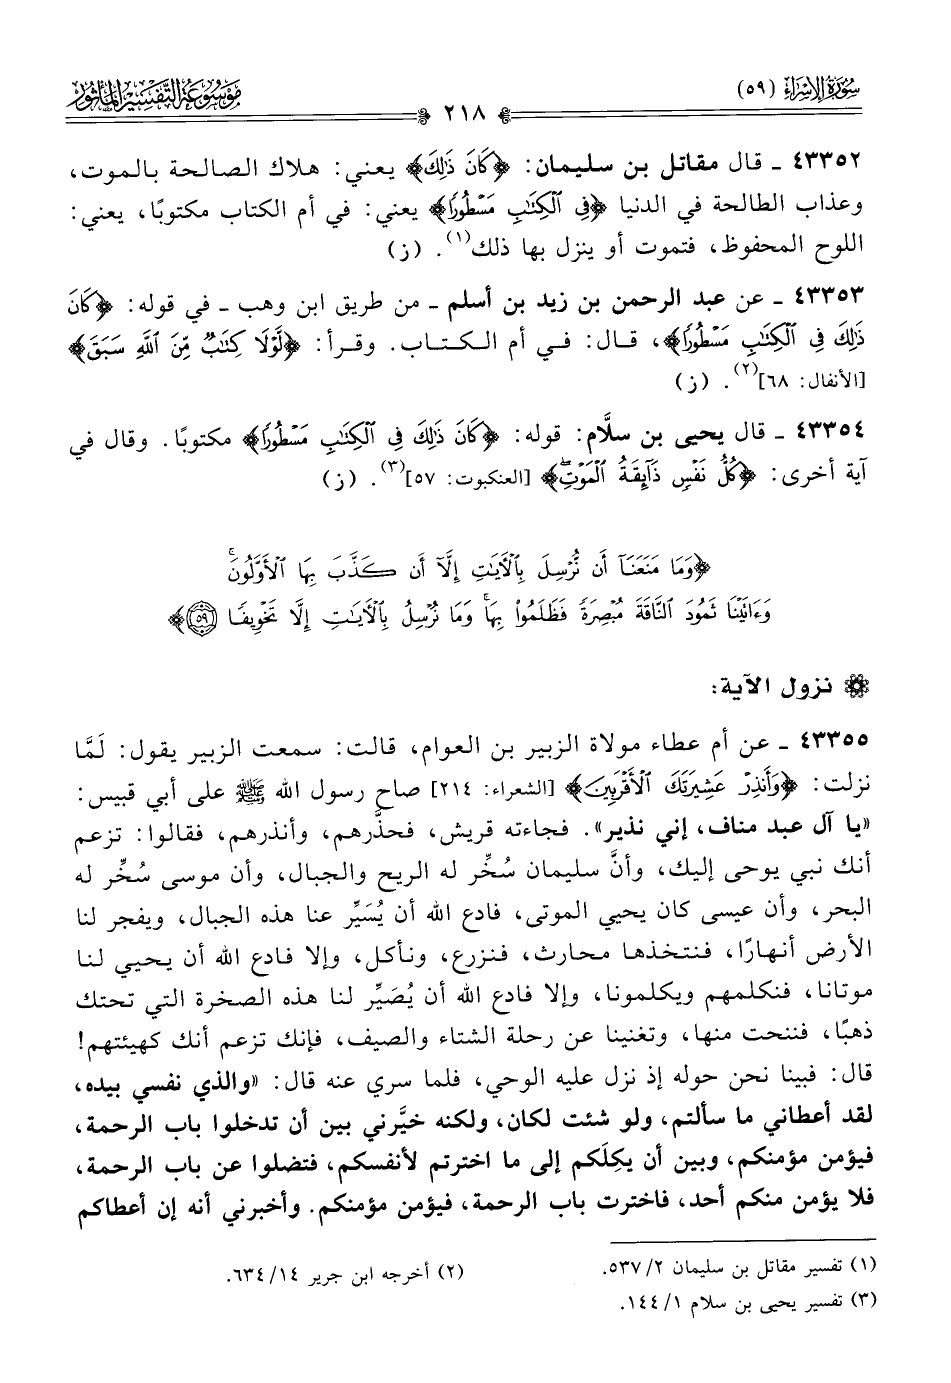 سُورَةُ الإِسْرَاء (٥٩)
٢١٨
مَوْسُوعَة التَّفْسِيرِ المَأْثُور
٤٣٣٥٢ - قال مقاتل بن سليمان: ﴿كَانَ ذَٰلِكَ﴾ يعني: هلاك الصالحة بالموت،
وعذاب الطالحة في الدنيا ﴿فِي ٱلْكِتَٰبِ مَسْطُورًا﴾ يعني: في أم الكتاب مكتوبًا، يعني:
اللوح المحفوظ، فتموت أو ينزل بها ذلك(١). (ز)
٤٣٣٥٣ - عن عبد الرحمن بن زيد بن أسلم - من طريق ابن وهب - في قوله: ﴿كَانَ
ذَٰلِكَ فِي ٱلْكِتَٰبِ مَسْطُورًا﴾، قال: في أم الكتاب. وقرأ: ﴿لَّوْلَا كِتَٰبٌ مِّنَ ٱللَّهِ سَبَقَ﴾
[الأنفال: ٦٨](٢). (ز)
٤٣٣٥٤ - قال يحيى بن سلَّام: قوله: ﴿كَانَ ذَٰلِكَ فِي ٱلْكِتَٰبِ مَسْطُورًا﴾ مكتوبًا. وقال في
آية أخرى: ﴿كُلُّ نَفْسٍ ذَآئِقَةُ ٱلْمَوْتِۖ﴾ [العنكبوت: ٥٧](٣). (ز)
﴿وَمَا مَنَعَنَآ أَن نُّرْسِلَ بِٱلْأٓيَٰتِ إِلَّآ أَن كَذَّبَ بِهَا ٱلْأَوَّلُونَۚ
وَءَاتَيْنَا ثَمُودَ ٱلنَّاقَةَ مُبْصِرَةً فَظَلَمُوا۟ بِهَاۚ وَمَا نُرْسِلُ بِٱلْأٓيَٰتِ إِلَّا تَخْوِيفًا ٥٩﴾
نزول الآية:
٤٣٣٥٥ - عن أم عطاء مولاة الزبير بن العوام، قالت: سمعت الزبير يقول: لَمَّا
نزلت: ﴿وَأَنذِرْ عَشِيرَتَكَ ٱلْأَقْرَبِينَ﴾ [الشعراء: ٢١٤] صاح رسول الله ﷺ على أبي قبيس:
«يا آل عبد مناف، إني نذير». فجاءته قريش، فحذَّرهم، وأنذرهم، فقالوا: تزعم
أنك نبي يوحى إليك، وأنَّ سليمان سُخِّر له الريح والجبال، وأن موسى سُخِّر له
البحر، وأن عيسى كان يحيي الموتى، فادع الله أن يُسَيِّر عنا هذه الجبال، ويفجر لنا
الأرض أنهارًا، فنتخذها محارث، فنزرع، ونأكل، وإلا فادع الله أن يحيي لنا
موتانا، فنكلمهم ويكلمونا، وإلا فادع الله أن يُصَيِّر لنا هذه الصخرة التي تحتك
ذهبًا، فننحت منها، وتغنينا عن رحلة الشتاء والصيف، فإنك تزعم أنك كهيئتهم!
قال: فبينا نحن حوله إذ نزل عليه الوحي، فلما سري عنه قال: «والذي نفسي بيده،
لقد أعطاني ما سألتم، ولو شئت لكان، ولكنه خيَّرني بين أن تدخلوا باب الرحمة،
فيؤمن مؤمنكم، وبين أن يكِلَكم إلى ما اخترتم لأنفسكم، فتضلوا عن باب الرحمة،
فلا يؤمن منكم أحد، فاخترت باب الرحمة، فيؤمن مؤمنكم. وأخبرني أنه إن أعطاكم
(١) تفسير مقاتل بن سليمان ٥٣٧/٢.
(٢) أخرجه ابن جرير ٦٣٤/١٤.
(٣) تفسير يحيى بن سلام ١٤٤/١.